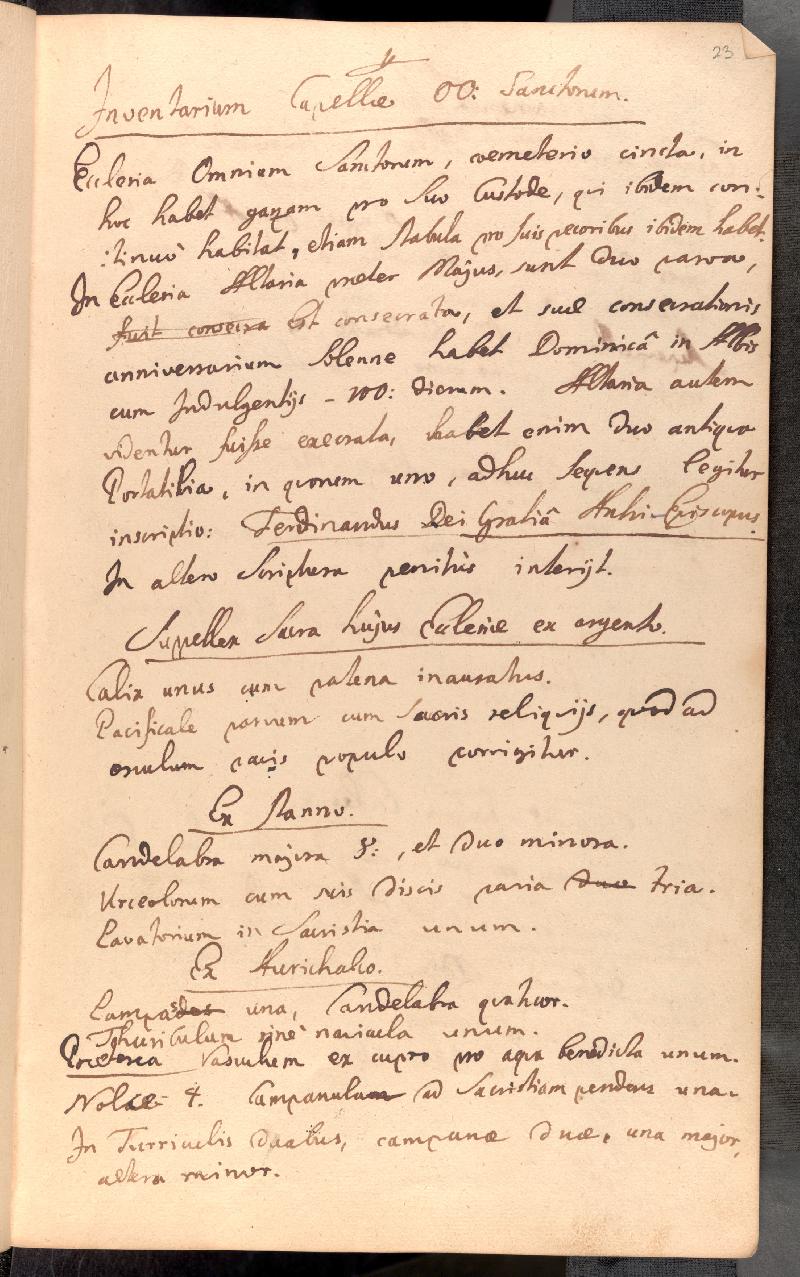 23
Inventarium Capellæ OO: Sanctorum.
Ecclesia Omnium Sanctorum, cemeterio cincta, in
hoc habet gazam pro suo Custode, qui ibidem con:
:tinuò habitat, etiam stabula pro suis pecoribus ibidem habet.
In Ecclesia Altaria præter Majus, sunt duo parva,
fuit consecra est consecrata, et suæ consecrationis
anniversarium solenne habet Dominicâ in Albis
cum Indulgentijs - 100: dierum. Altaria autem
videntur fuisse execrata, habet enim duo antiqua
Portatilia, in quorum uno, adhuc sequens legitur
inscriptio: Ferdinandus Dei Gratiâ Archi-Episcopus.
In altero Scriptura penitùs interijt.
Supellex Sacra hujus Ecclesiæ ex argento.
Calix unus cum patena inauratus.
Pacificale parvum cum sacris reliquijs, quod ad
osculum pacis populo porrigitur.
Ex Stanno.
Candelabra majora 8:, et duo minora.
Urceolorum cum suis discis paria duo tria.
Lavatorium in Sacristia unum.
Ex Aurichalco.
Lampades una, Candelabra quatuor.
Thuribulum sine navicula unum.
Præterea Vasculum ex cupro pro aqua benedicta unum.
Nolæ 4. Campanulam ad Sacristiam pendens una.
In Turriculis duabus, campanæ duæ, una major,
altera minor.